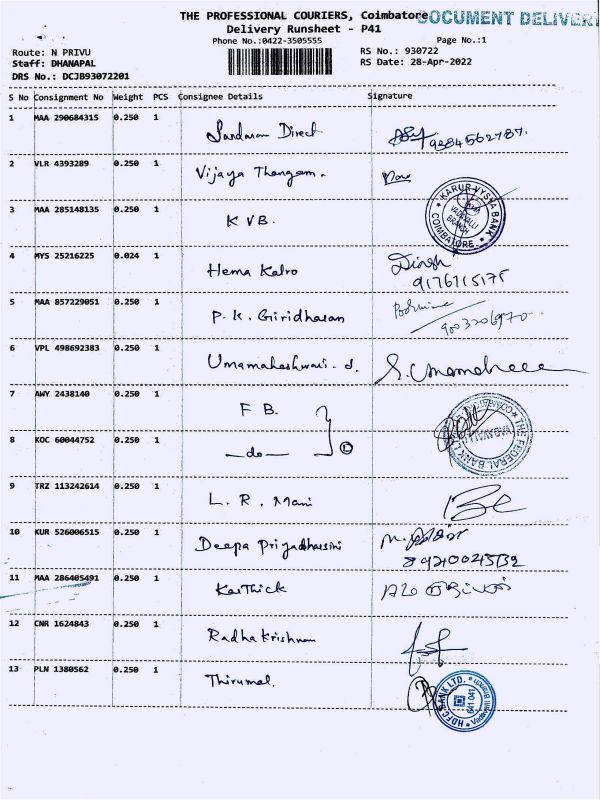 THE PROFESSIONAL COURIERS, Coimbatore
DOCUMENT DELIVERY
Delivery Runsheet - P41
Phone No.:0422-3505555
Page No.:1
Route: N PRIVU
RS No.: 930722
Staff: DHANAPAL
RS Date: 28-Apr-2022
DRS No.: DCJB93072201
S No Consignment No Weight PCS Consignee Details Signature
1 MAA 290684315 0.250 1 Sundaram Direct
2 VLR 4393289 0.250 1 Vijaya Thangam.
3 MAA 285148135 0.250 1 KVB.
KARUR VYSYA BANK
VADAVALLI
BRANCH
COIMBATORE
4 MYS 25216225 0.024 1 Hema Kalro Dinesh
9176115175
5 MAA 857229051 0.250 1 P.K. Giridharan
9003206970
6 VPL 498692383 0.250 1 Umamaheshwari.S.
7 AWY 2438140 0.250 1 FB.
THE FEDERAL BANK
8 KOC 60044752 0.250 1 —do—
9 TRZ 113242614 0.250 1 L.R. Mani
10 KUR 526006515 0.250 1 Deepa Priyadharsini
11 MAA 286405491 0.250 1 Karthick
12 CNR 1624843 0.250 1 Radhakrishnan
13 PLN 1380562 0.250 1 Thirumal.
HDFC BANK LTD.
641 041